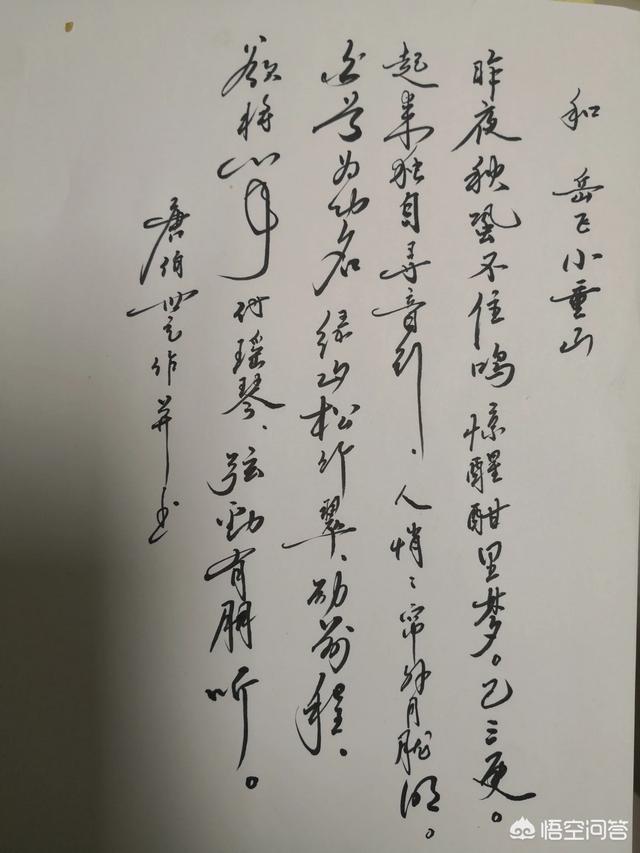 和 岳飞小重山
昨夜秋蛩不住鸣 惊醒酣里梦。已三更。
起来独自寻音行、人悄〻帘外月胧明。
白首为功名 绿松竹翠、前程、
欲将心事付瑶琴、弦有朋听。
唐伯元作并书
悟空问答